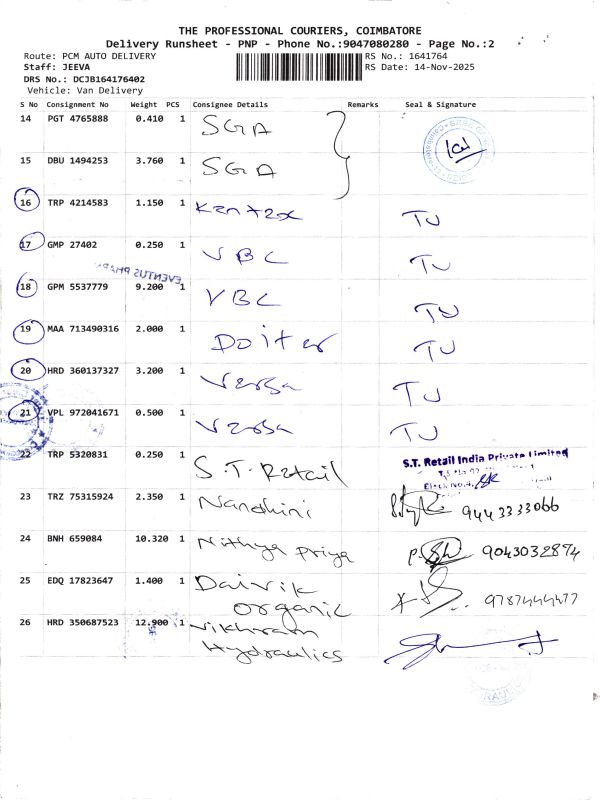 THE PROFESSIONAL COURIERS, COIMBATORE
Delivery Runsheet - PNP - Phone No.:9047080280 - Page No.:2
Route: PCM AUTO DELIVERY
RS No.: 1641764
Staff: JEEVA
RS Date: 14-Nov-2025
DRS No.: DCJB164176402
Vehicle: Van Delivery
S No Consignment No Weight PCS Consignee Details Remarks Seal & Signature
14 PGT 4765888 0.410 1 SGA
15 DBU 1494253 3.760 1 SGA
16 TRP 4214583 1.150 1 TJ
17 GMP 27402 0.250 1 VBC TJ
EVENTUS
18 GPM 5537779 9.200 1 VBC TJ
19 MAA 713490316 2.000 1 Doiter TJ
20 HRD 360137327 3.200 1 Versa TJ
21 VPL 972041671 0.500 1 Versa TJ
22 TRP 5320831 0.250 1 S.T. Retail S.T. Retail India Private Limited
23 TRZ 75315924 2.350 1 Nandhini 9443333066
24 BNH 659084 10.320 1 Nithya Priya 9043032894
25 EDQ 17823647 1.400 1 Dairik organic 9787444477
26 HRD 350687523 12.900 1 Vikhram Hydraulics